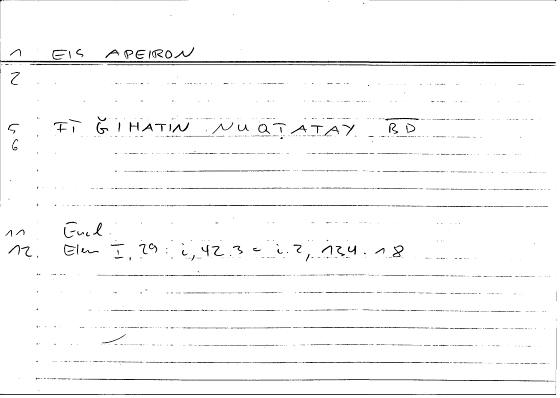 1 EIS APEIRON
2
5 FĪ ĞIHATIN NUQṬATAY B̅D̅
6
11 Eucl.
12. Elem I, 29 : i, 42.3 = i.2, 134.18